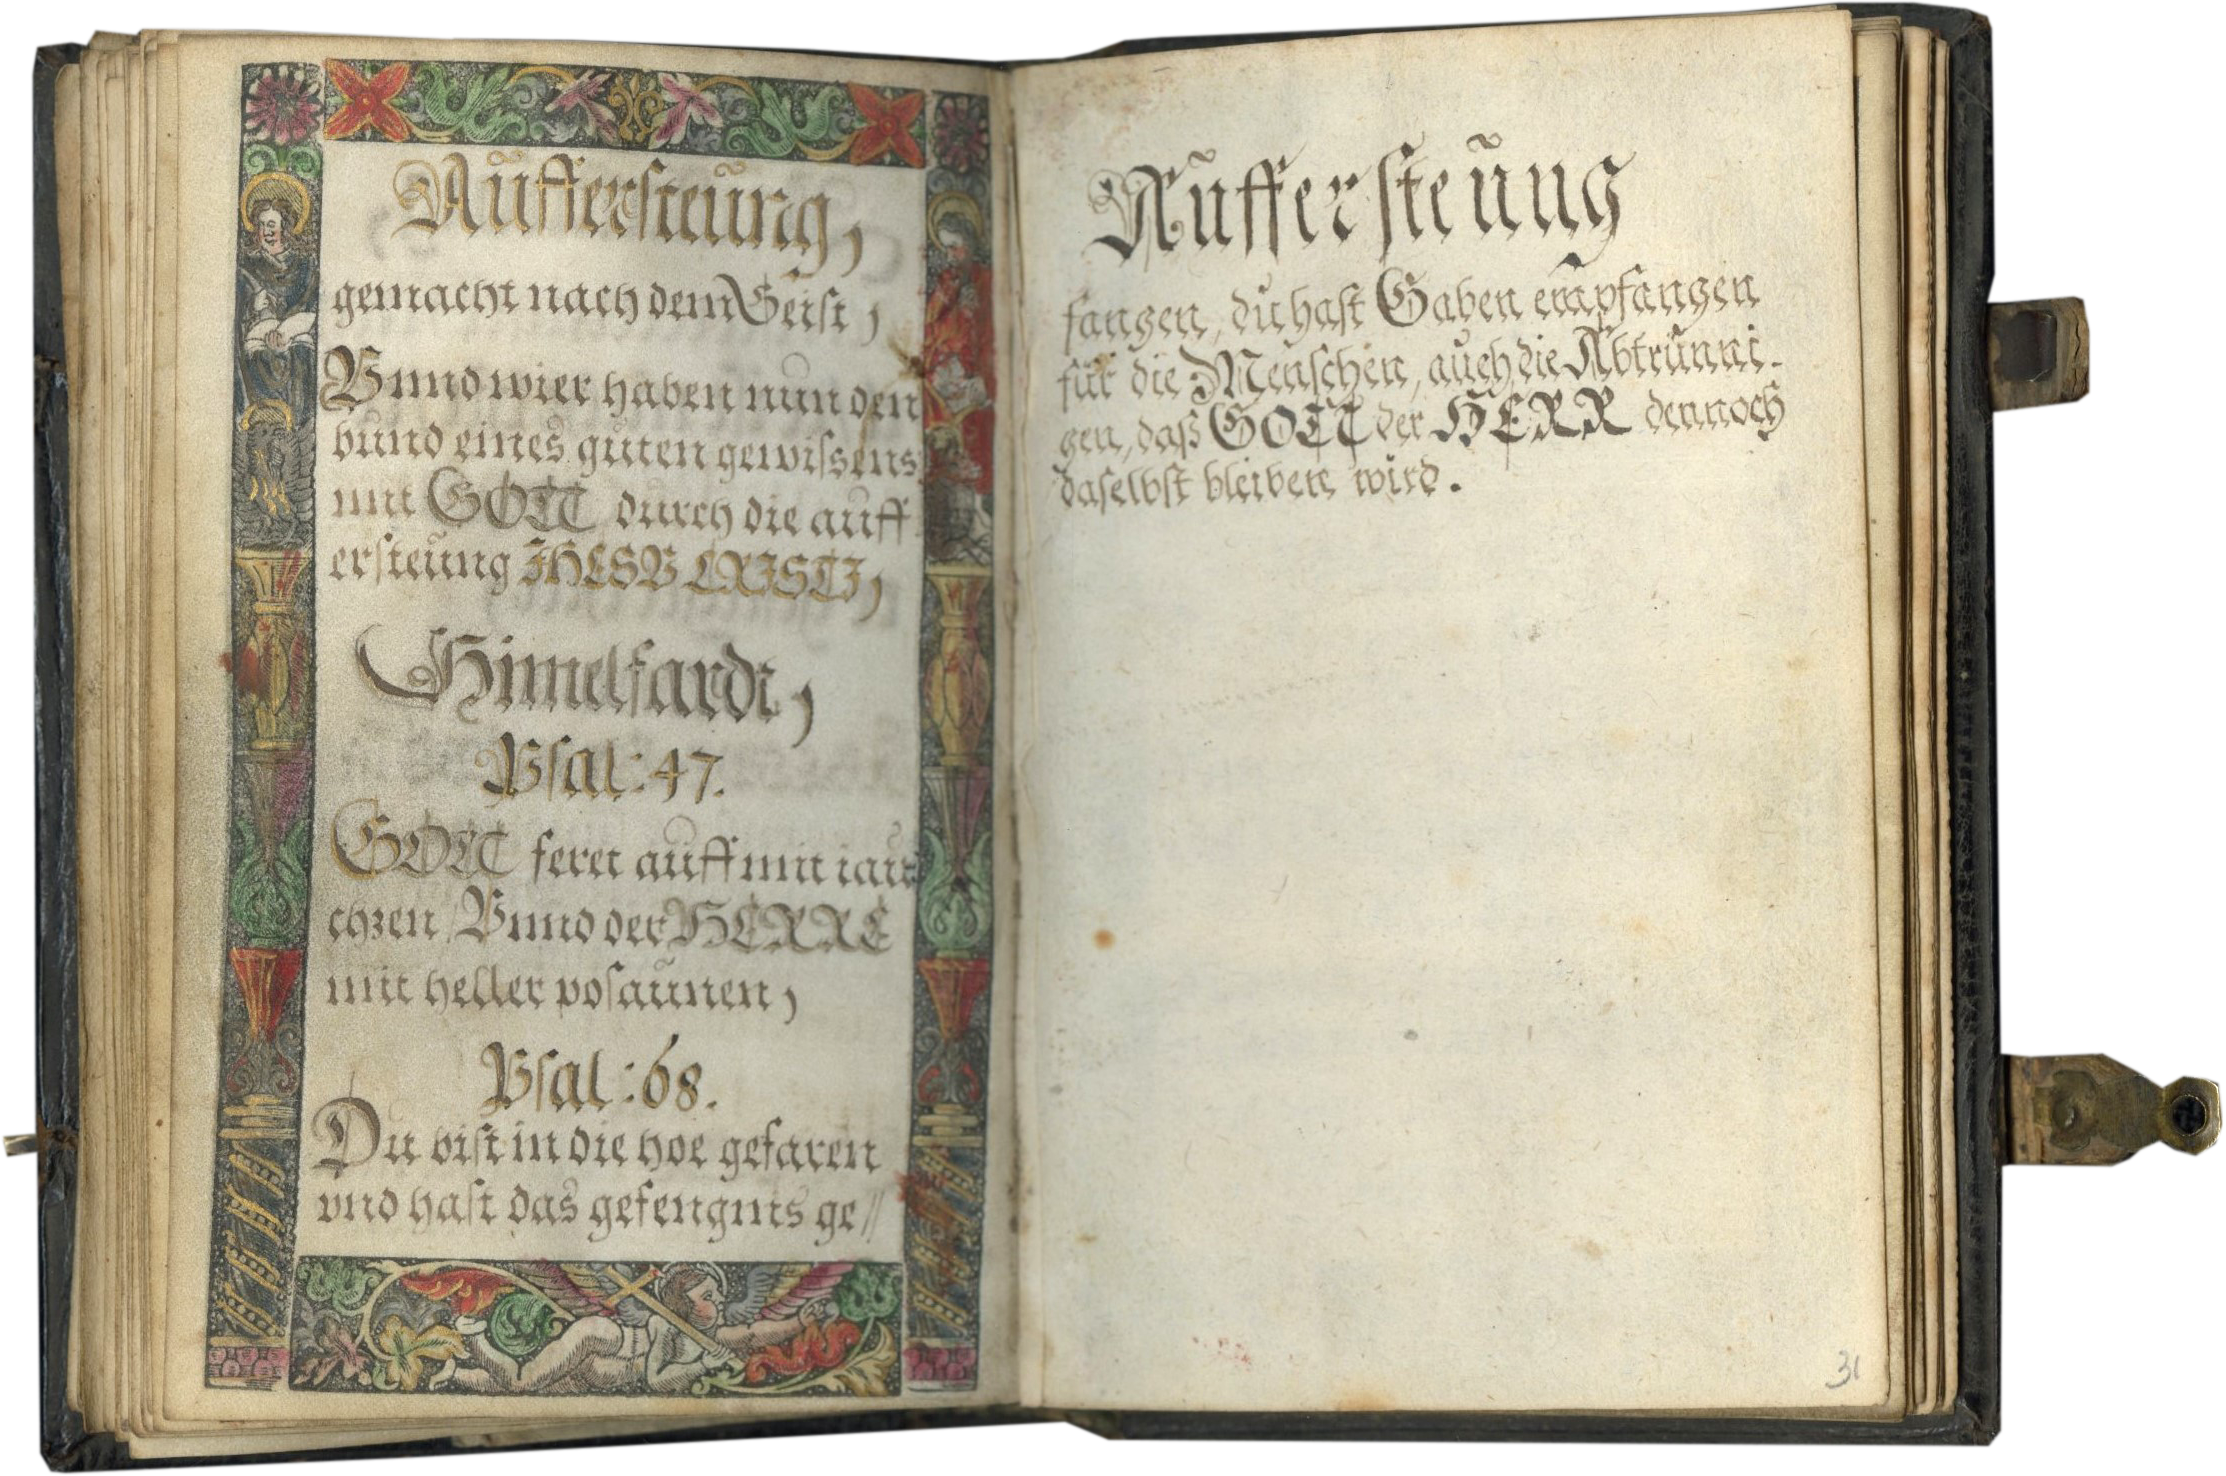 Auffersteung,
gemacht nach dem Geist,
Vnnd wier haben nun den
bund eines guten gewissens
mit GOTT durch die auff
ersteung IHESV CRISTI,
Himelfardt,
Psal: 47.
GOTT feret auff mit iau
chzen / Vnnd der HERRE
mit heller posaunen,
Psal: 68.
Du bist in die hoe gefaren
vnd hast das gefengnis ge//
Aufferſteung
fangen, du haſt Gaben empfangen
für die Menſchen, auch die Abtrünni-
gen, daß GOTT der HERR dennoch
daſelbſt bleiben wird.
31